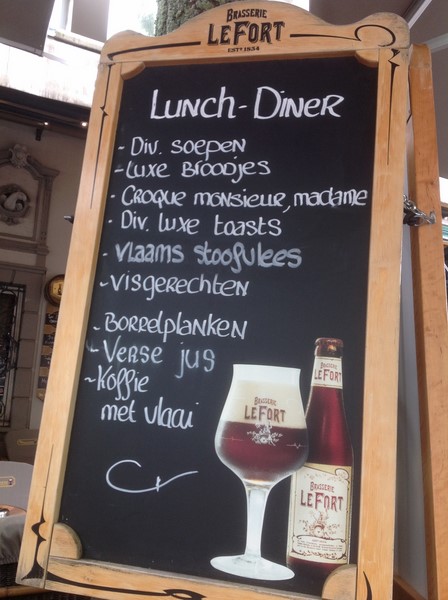 BRASSERIE
LEFORT
ESTD. 1834
LUNCH-DINER
- Div. SOEPEN
- LUXE BROODJES
- CROQUE MONSIEUR, MADAME
- Div. LUXE TOASTS
- VLAAMS STOOFVLEES
- VISGERECHTEN
- BORRELPLANKEN
- VERSE JUS
- KOFFIE
MET VLAAI
BRASSERIE
LEFORT
BRASSERIE
LEFORT
BRASSERIE
LEFORT